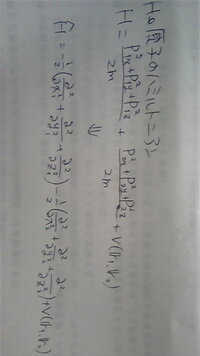 Heの原子のハミルトニアン
H = \frac{P_{1x}^2+P_{1y}^2+P_{1z}^2}{2m} + \frac{P_{2x}^2+P_{2y}^2+P_{2z}^2}{2m} + V(r_1, r_2)
⇓
\hat{H} = -\frac{1}{2}(\frac{∂^2}{∂x_1^2}+\frac{∂^2}{∂y_1^2}+\frac{∂^2}{∂z_1^2}) - \frac{1}{2}(\frac{∂^2}{∂x_2^2}+\frac{∂^2}{∂y_2^2}+\frac{∂^2}{∂z_2^2}) + V(r_1, r_2)